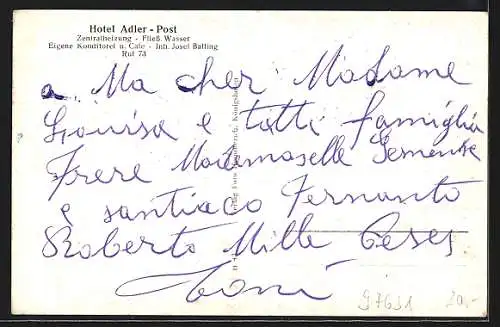 Hotel Adler - Post
Zentralheizung - Fließ. Wasser
Eigene Konditorei u. Cafe - Inh. Josef Batting
Ruf 73
a. Ma cher Madame
Louisa e tutti famiglia
Frere Mademaselle
e santiaco Fernanto
Roberto Mille
Toni
97631 20,-